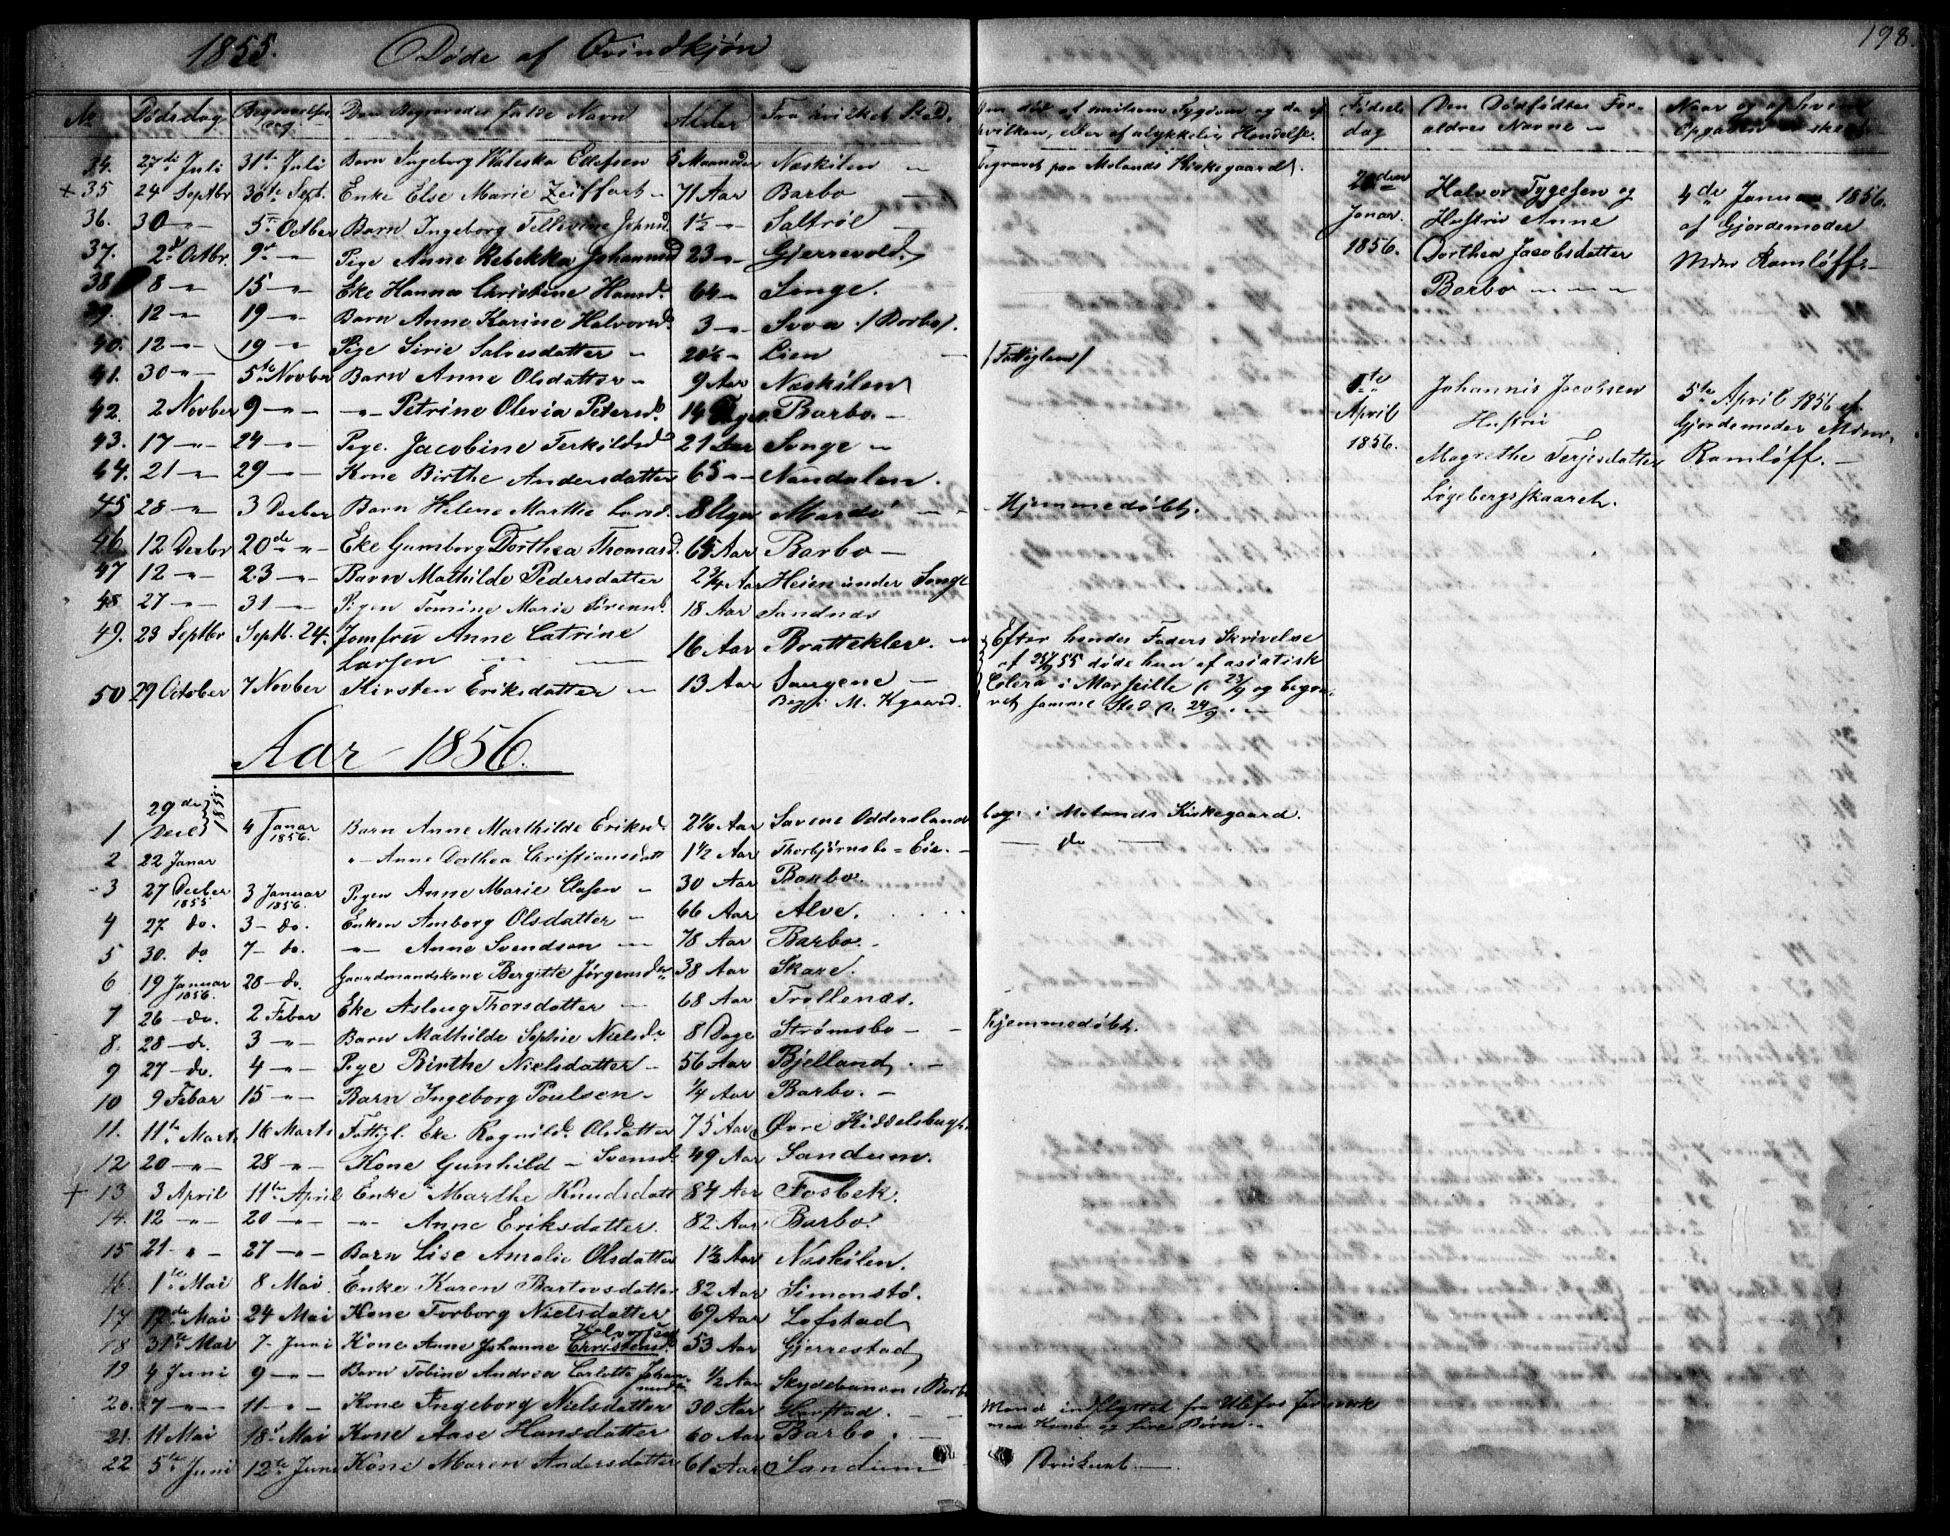 1855. Døde af Qvindkjøn
198.
No Dødsdag Begravelses dag Den Begravedes fulde Navn Alder Fra hvilket Sted.
34. 27de Juli 31te Juli Barn Ingeborg Waleska Ellefsen 5 Maaneder Næskilen
+ 35. 24 Septbr 30te Sept. Enke Else Marie Zeiffart 71 Aar Barbo
36. 30 - " - 5te Octber Barn Ingeborg Johnsd 1½ - " - Saltrøe
37. 2d Octbr. 9de - " - Pige Anne Rebekka Johannsd 23 - " - Gjerrevold
38 8 - " - 15 - " - Eke Hanna Christine Hansd. 64 - " - Songe.
39. 12 - " - 19 - " - Barn Anne Karine Halvorsd. 3 - " - Svoa /Barbo/.
40. 12 - " - 19 - " - Pige Sirie Salvesdatter 20½ - Lien
41. 30 - " - 5te Novber Barn Anne Olsdatter 9 Aar Næskilen
42. 2 Novber 9 - " - - " - Petrine Olevia Petersd. 14 Dage. Barbo.
43. 17 - " - 24 - " - Pige. Jacobine Terkildsd 21 Aar Songe
44. 21 - " - 29 - " - Kone Birthe Andersdatter 65 - " - Næsdalen.
45 28 - " - 3 Decber Barn Helene Marthe Larsd. 8 Uger Mardø
46. 12 Decbr 20de - " - Eke Gumborg Dorthea Thomasd. 65 Aar Barbo
47 12 - " - 23 - " - Barn Mathilde Pedersdatter 2¾ Aar Heien under Songe
48 27 - " - 31 - " - Pigen Tomine Marie Sørensd. 18 Aar Sandnæs
49. 23 Septbr Septb. 24. Jomfru Anne Catrine
Larsen 16 Aar Brattekler.
50 29 October 7 Novber Kirsten Eriksdatter 13 Aar Saugene
Beg. i M. Kgaard.
Aar 1856.
1 29de Decb 1855. 4 Januar 1856. Barn Anne Marthilde Eriksd. 2½ Aar Savene Oddersland
2 22 Janar " - Anne Dorthea Christiansdatt 1½ Aar Thorbjørnsbo = Eie.
3 27 Decber 1855 3 Januar 1856. Pigen Anne Marie Clasen 30 Aar Barbo.
4 27. do. 3 - do. Enken Amborg Olsdatter 66 Aar Alve.
5 30. do 7 - do. - " - Anne Svendsen 78 Aar Barbo.
6 19 Januar 1856. 28 - do. Gaardmandskone Bergitte Jørgensdr 38 Aar Skare.
7 26 - do. 2 Febar Eke Aslaug Thorsdatter 68 Aar Trollenæs.
8. 28 - do. 3 - " - Barn Mathilde Sophie Nielsdr 8 Dage Strømsbo
9 27 - do. 4 - " - Pige Birthe Nielsdatter 56 Aar Bjelland.
10 9 Febar 15 - " - Barn Ingeborg Poulsen ¼ Aar Barbo.
11. 11te Marts 16 Marts Fattigl. Eke Ragnild. Olsdatter 75 Aar Øvre Kiddelsbugt.
12 20 - " - 28 - " - Kone Gunhild Svensdr 49 Aar Sandum.
+ 13 3 April 11te April Enke Marthe Knudsdatt 84 Aar Fosbek.
14. 12 - " - 20 - " - - " - Anne Eriksdatter. 82 Aar Barbo.
15 21 - " - 27 - " - Barn Lise Amalie Olsdatter 1½ Aar Næskilen.
16. 1te Mai 8 Mai. Enke Karen Bartovsdatter 82 Aar Simonstø.
17 17de Mai 24 Mai Kone Torborg Nielsdatter 69 Aar Lofstad
18 31te Mai 7 - Juni Kone Anne Johanne Christensd. Halvorsen 53 Aar Gjerrestad
19 4 Juni 9 - " - Barn Tobine Andrea Carlotta Johan- ½ Aar Skydebanen. Barbo
20. 7 - " - 11 - " - Kone Ingeborg Nielsdatter 30 Aar Harstad.
21. 11 Mai 18d Mai Kone Aase Hansdatter 60 Aar Barbo.
22 5te Juni 12te Juni Kone Maren Andersdatter 61 Aar Sandum
Om død af smitsom Sygdom og da af hvilken, eller af ulykkelig Hendelse. Fødsels dag Den Dødfødtes For- ældres Navne Naar og af hvem Opgaven er skeet
Begravet paa Molands Kirkegaard.
/Fattiglem/
Hjemmedøbt.
Efter hendes Faders Skrivelse
af 25/9 55 døde hun af asiatisk
Colera i Marseille d. 23/9 og begra-
vet samme Sted d. 24/9.
begr. i Molands Kirkegaard.
do
hjemmedøbt.
Mand indflyttet fra Ulefos Jernværk
med Kone og fire Børn.
Druknet.
Januar. 1856. Halvor Tygesen og
Hustru Anne
Dorthea Jacobsdatter
Barbo
4de Januar 1856.
af Gjordemoder
Mdme Ramløff
5te April 1856. Johannis Jacobsen
Hustru
Magrethe Terjesdatter
Løgebergsskaaret.
5te April 1856 af
Gjordemoder Mdme.
Ramløff.